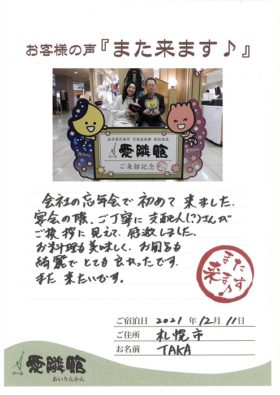 お客様の声『また来ます♪』
愛隣館
ご来館記念
会社の忘年会で初めて来ました。
宴会の際、ご丁寧に支配人(?)さんが
ご挨拶に見えて、感激しました。
お料理も美味しく、お風呂も
綺麗でとても良かったです。
また来たいです。
また来ます
ご宿泊日 2021年12月11日
ご住所 札幌市
お名前 TAKA
愛隣館
あいりんかん